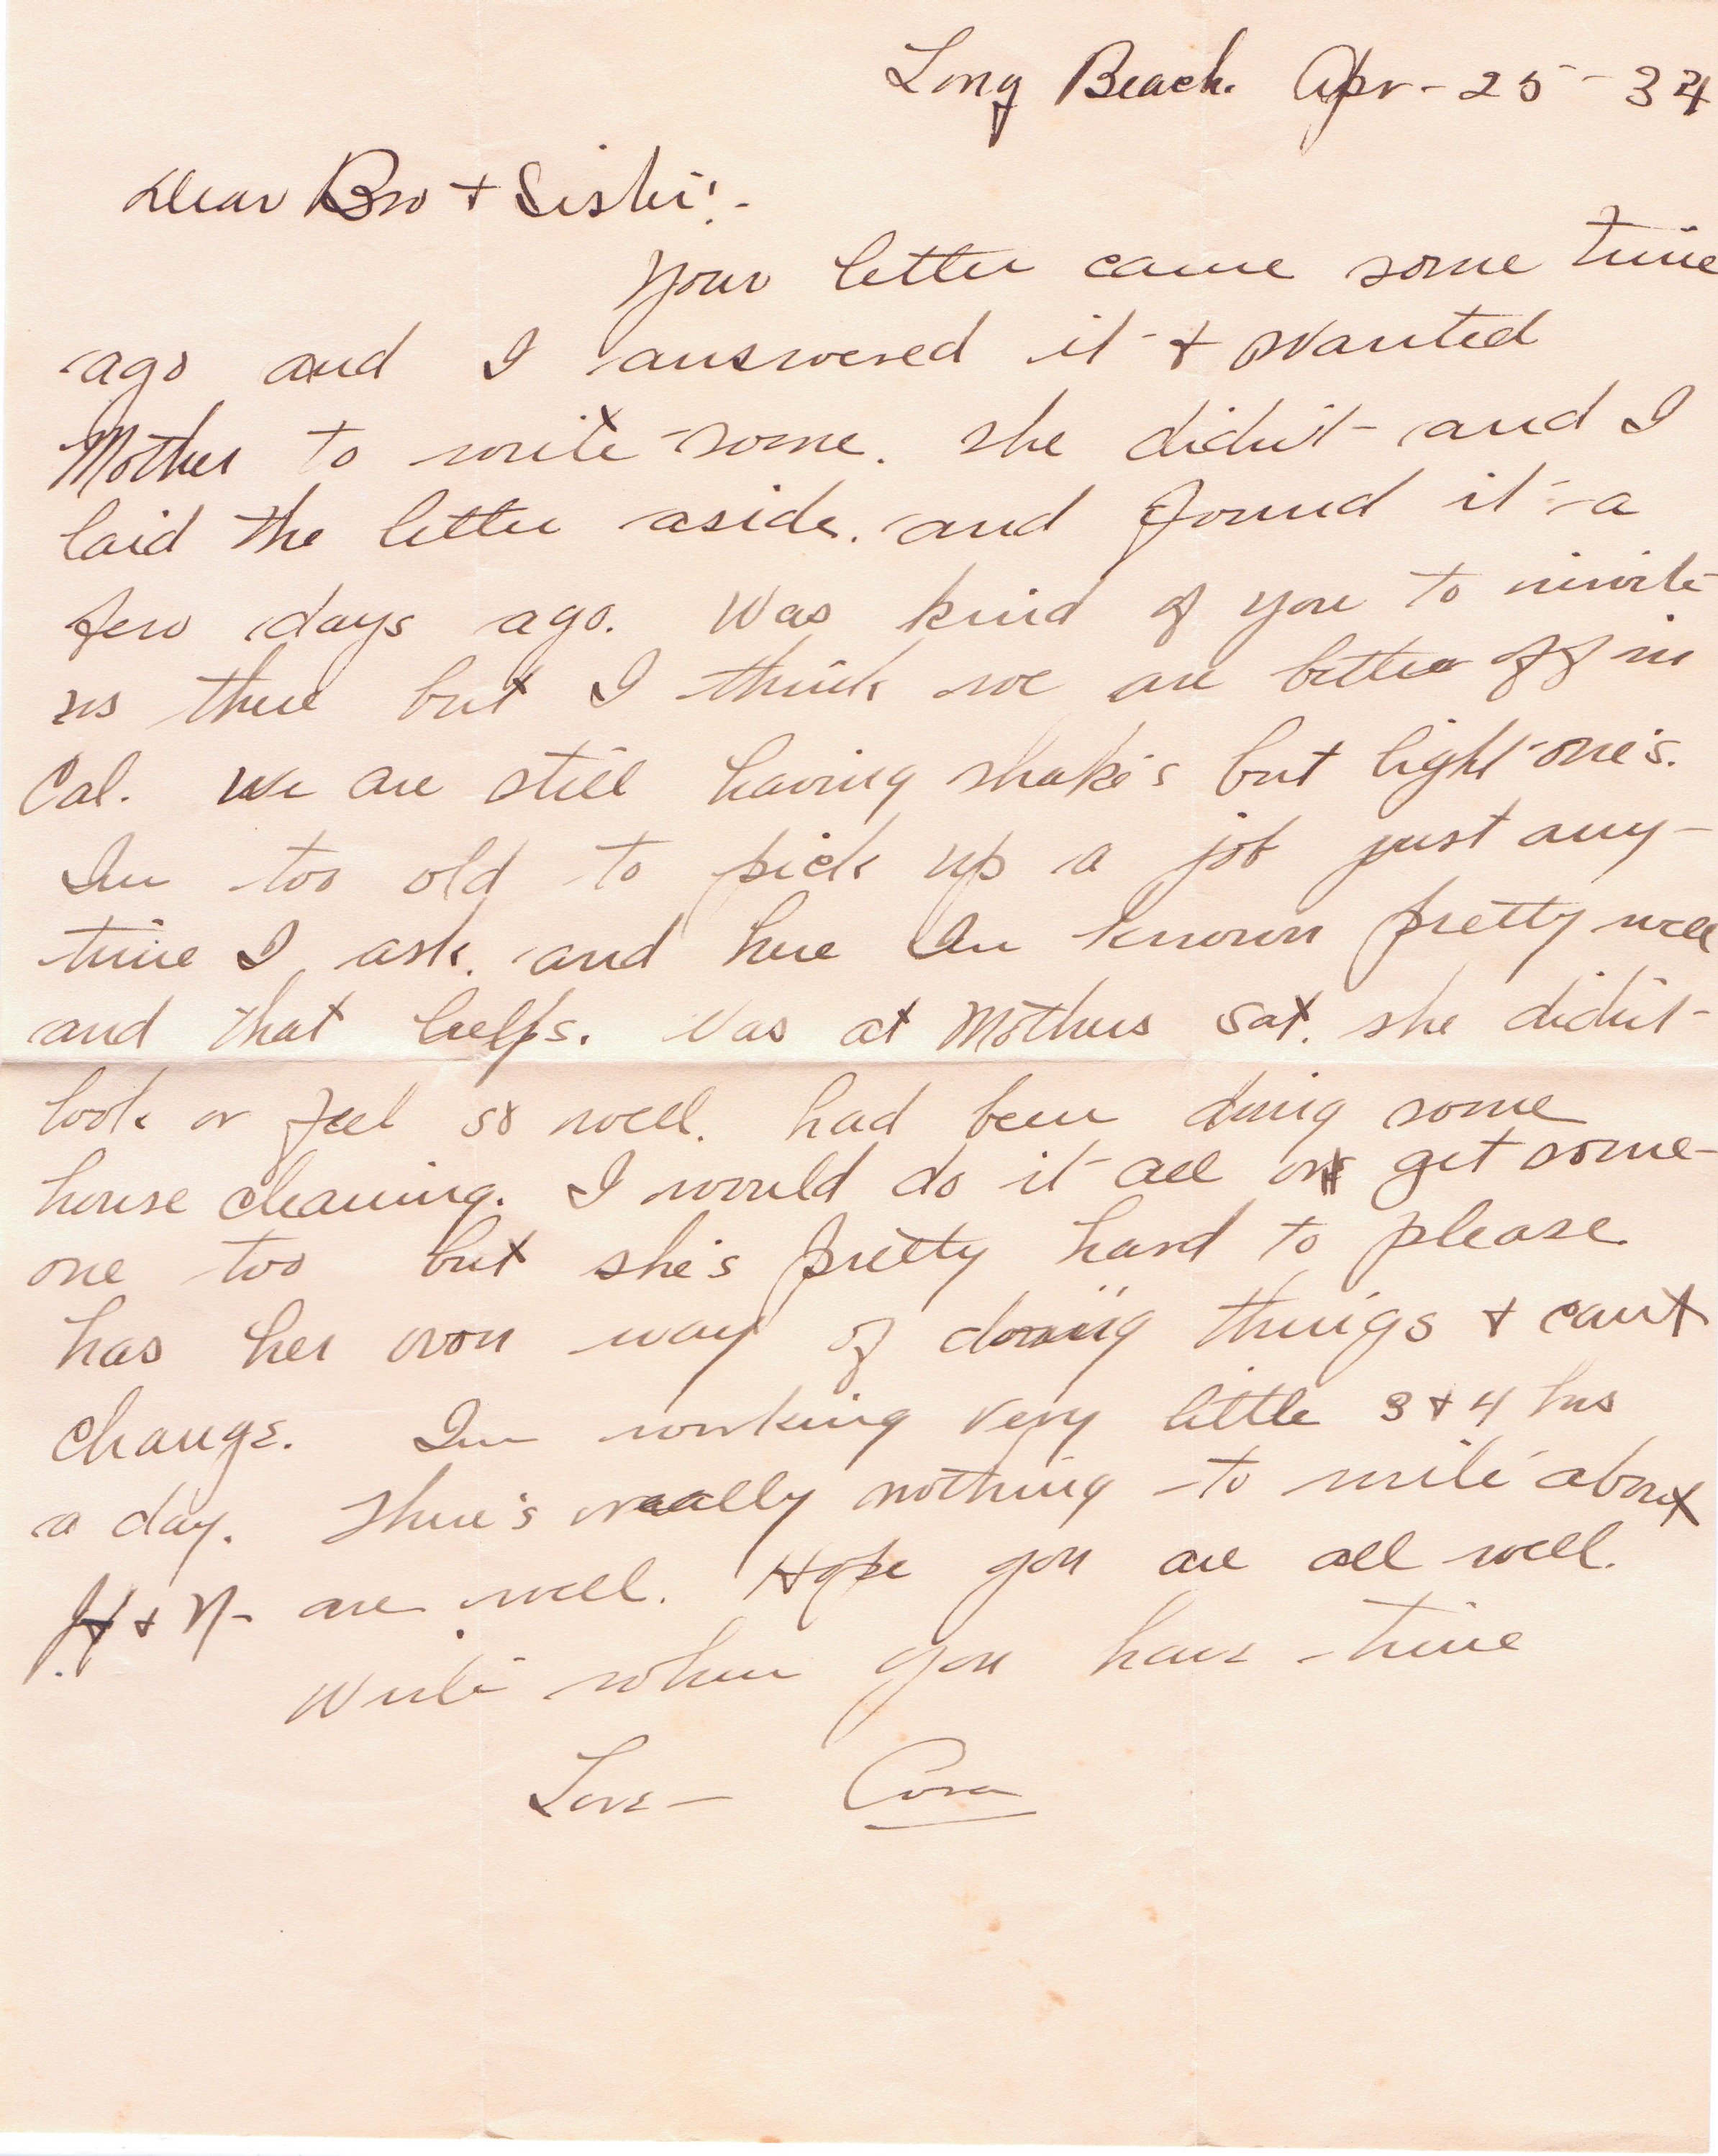 Long Beach. Apr - 25 - 34
Dear Bro + Sister! -
Your letter came some time
ago and I answered it + wanted
Mother to write some. she didn't and I
laid the letter aside. and found it a
few days ago. Was kind of you to invite
us there but I think we are better off in
Cal. We are still having shake's but light one's.
Im too old to pick up a job just any-
time I ask. and here Im known pretty well
and that helps. Was at Mothers Sat. she didn't
look or feel so well. had been doing some
house cleaning. I would do it all or get some-
one too but she's pretty hard to please.
has her own way of doing things + can't
change. Im working very little 3 + 4 hrs
a day. There's really nothing to write about
+ N - are well. Hope you are all well.
Write when you have time
Love - Cora